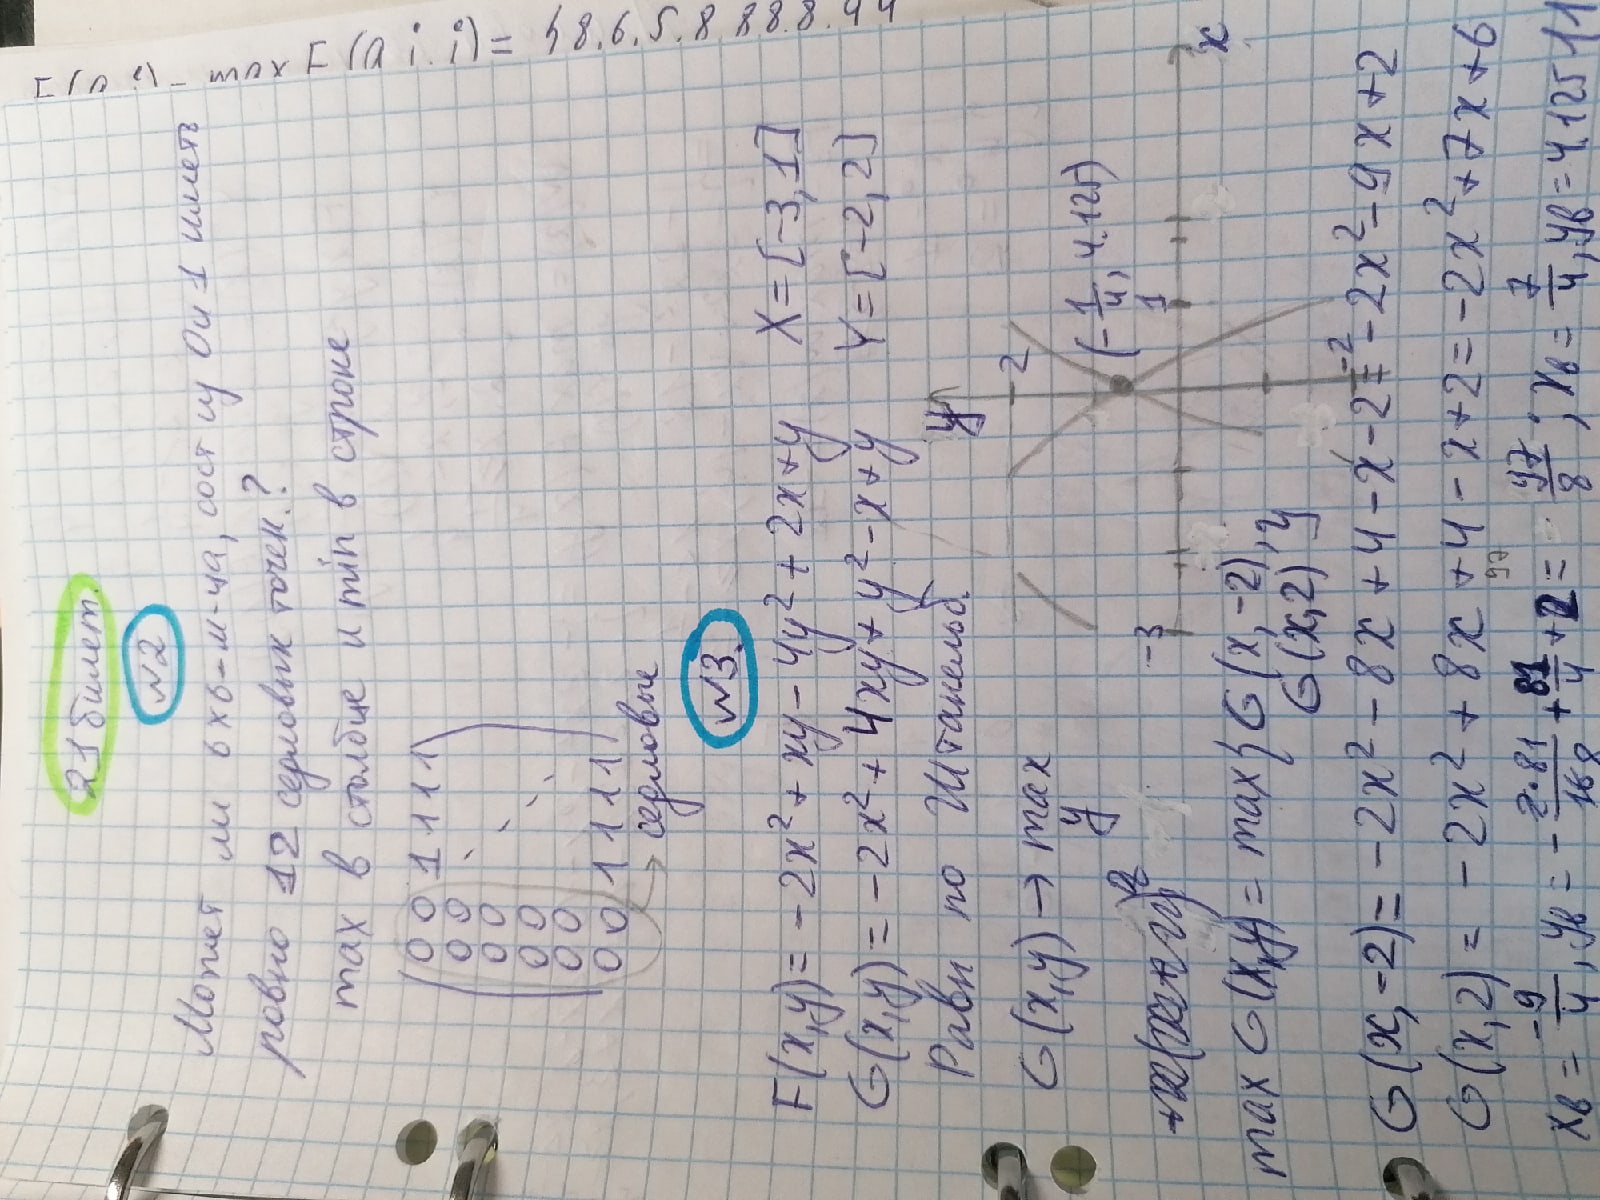 max F(a i. i) =
21 билет.
№2
Может ли 6х6-м-ца, сост из 0 и 1 иметь
ровно 12 седловых точек?
max в столбце и min в строке
0 0 1 1 1 1
0 0
0 0
0 0
0 0
0 0 1 1 1 1
→ седловые
№3
F(x,y) = -2x² + xy - 4y² + 2x + y X = [-3, 1]
G(x,y) = -2x² + 4xy + y² - x + y Y = [-2, 2]
Равн по Штакельб.
G(x,y) → max
y
y
2
(-1/4, 4.125)
-3
1
x
-2
max G(x,y) = max { G(x,-2), y
G(x,2) y
G(x,-2) = -2x² - 8x + 4 - x - 2 = -2x² - 9x + 2
G(x,2) = -2x² + 8x + 4 - x + 2 = -2x² + 7x + 6
97
xв = -9/4, yв = - 2·81/16 8 + 81/4 + 2 = ; xв = 7/4, yв = 4,125